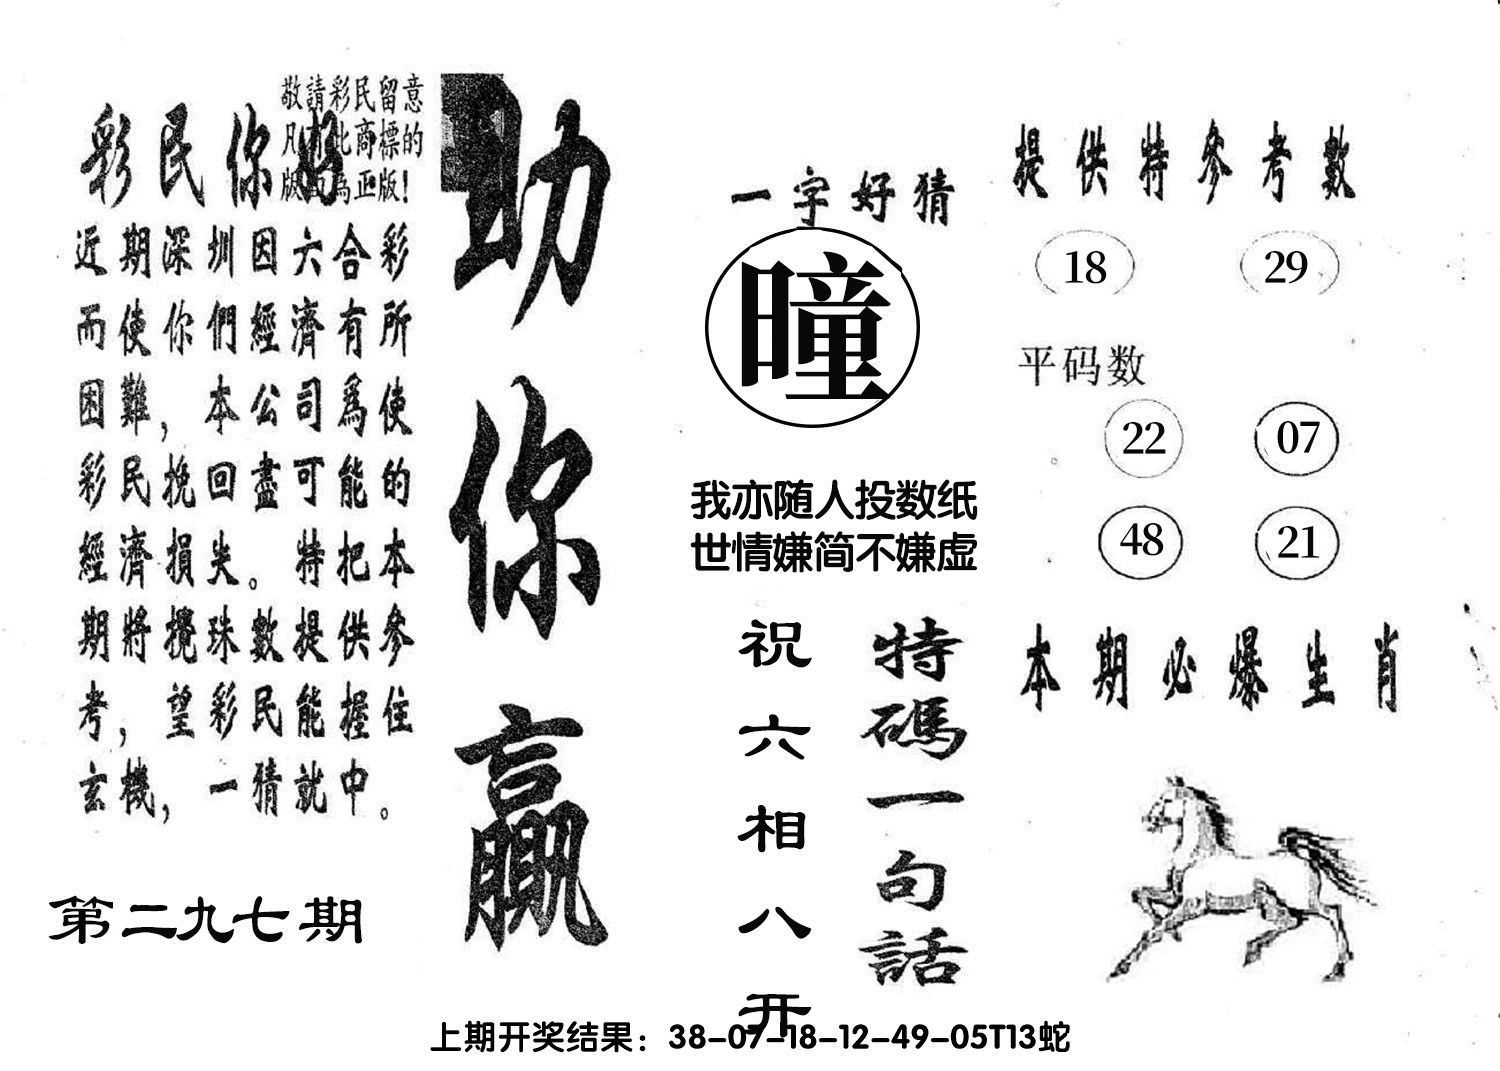 敬請彩民留意
凡有此商標的
版面為正版！
彩民你好
近期深圳因六合彩
而使你們經濟有所
困難，本公司爲使
彩民挽回盡可能的
經濟損失。特把本
期將攪珠數提供參
考，望彩民能握住
玄機，一猜就中。
第二九七期
助你贏
一字好猜
曈
我亦随人投数纸
世情嫌简不嫌虚
特碼一句話
祝六相八开
提供特參考數
18 29
平码数
22 07
48 21
本期必爆生肖
上期开奖结果：38-07-18-12-49-05T13蛇